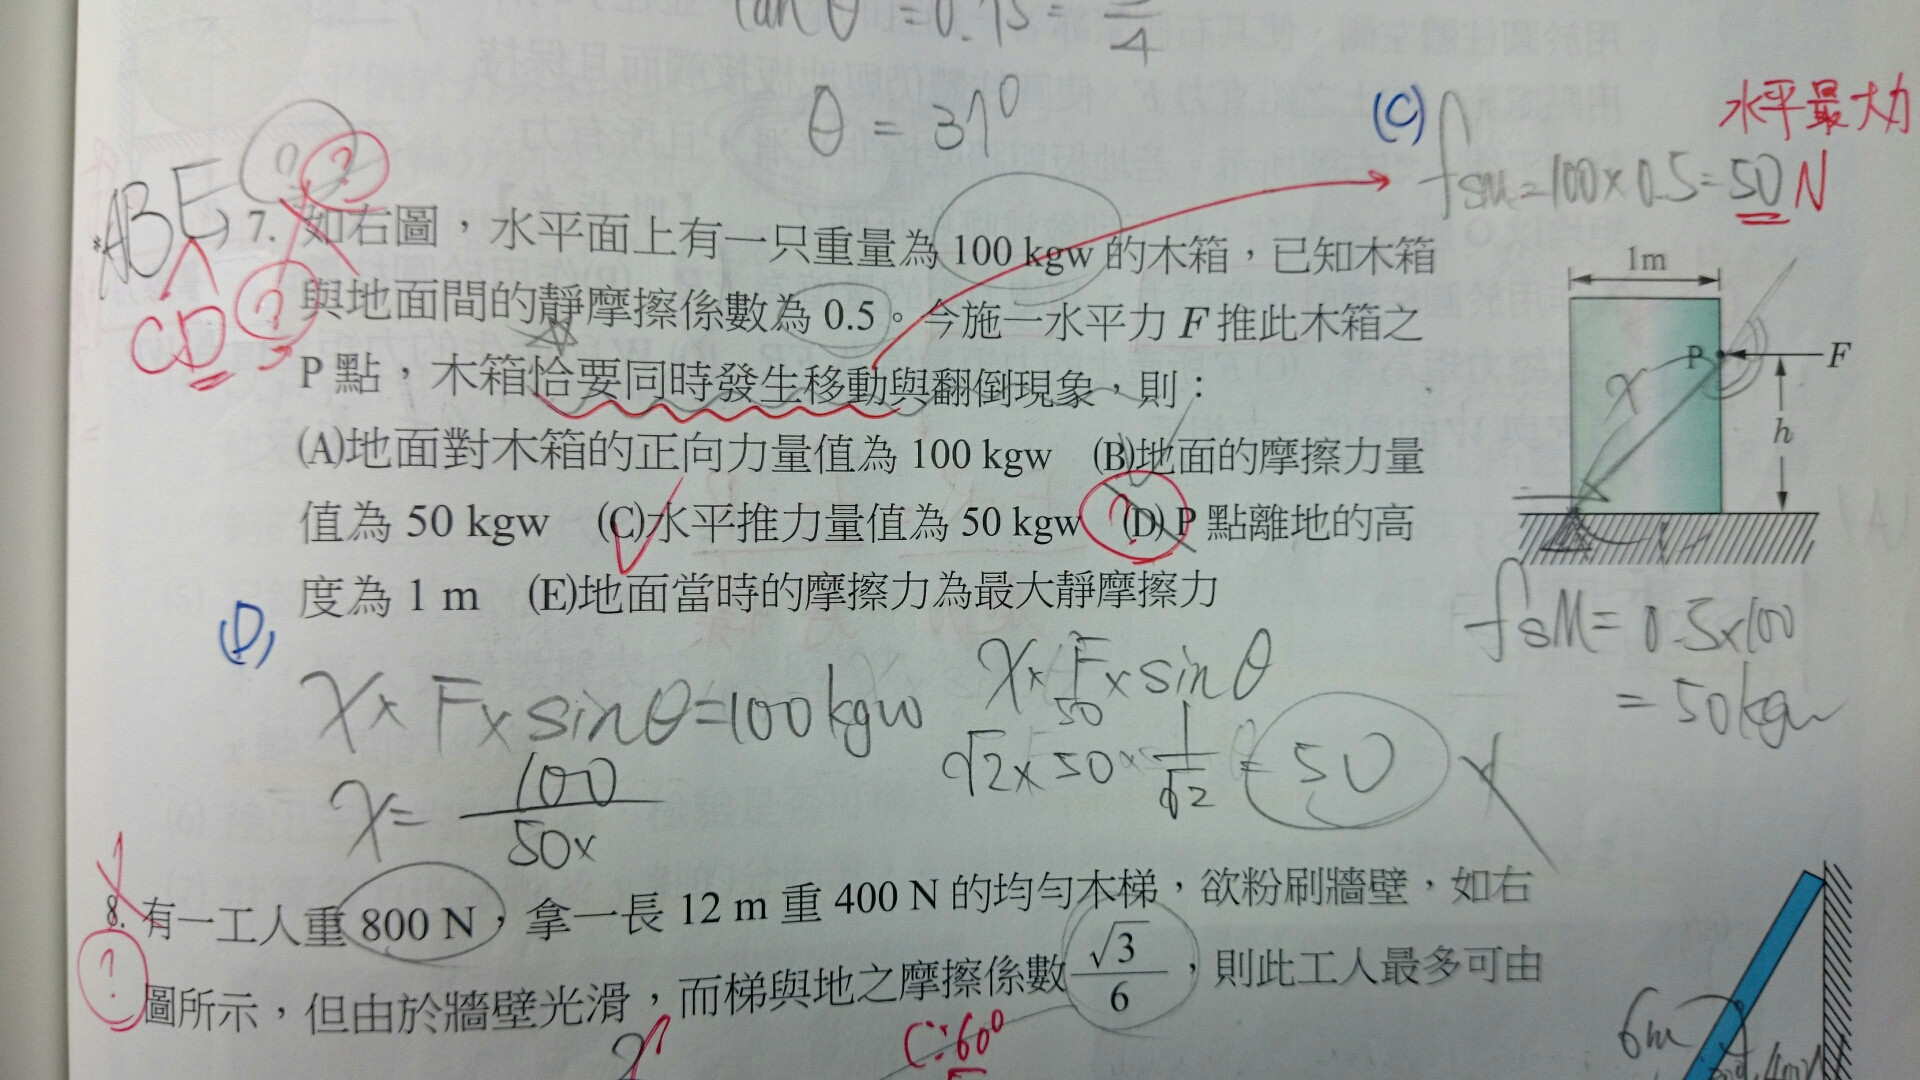 tan θ = 0.75 = 3/4
θ = 37°
(C) fsM = 100 × 0.5 = 50 N
水平最大力
ABE
CD
7. 如右圖，水平面上有一只重量為 100 kgw 的木箱，已知木箱
與地面間的靜摩擦係數為 0.5。今施一水平力 F 推此木箱之
P 點，木箱恰要同時發生移動與翻倒現象，則：
(A)地面對木箱的正向力量值為 100 kgw (B)地面的摩擦力量
值為 50 kgw (C)水平推力量值為 50 kgw (D) P 點離地的高
度為 1 m (E)地面當時的摩擦力為最大靜摩擦力
1m
P
F
x
h
fsM = 0.5×100
= 50 kgw
(D)
x × F × sin θ = 100 kgw
x = 100/50x
x × F × sin θ
50
√2 × 50 × 1/√2 = 50
8. 有一工人重 800 N，拿一長 12 m 重 400 N 的均勻木梯，欲粉刷牆壁，如右
圖所示，但由於牆壁光滑，而梯與地之摩擦係數 √3/6，則此工人最多可由
C:60°
6m